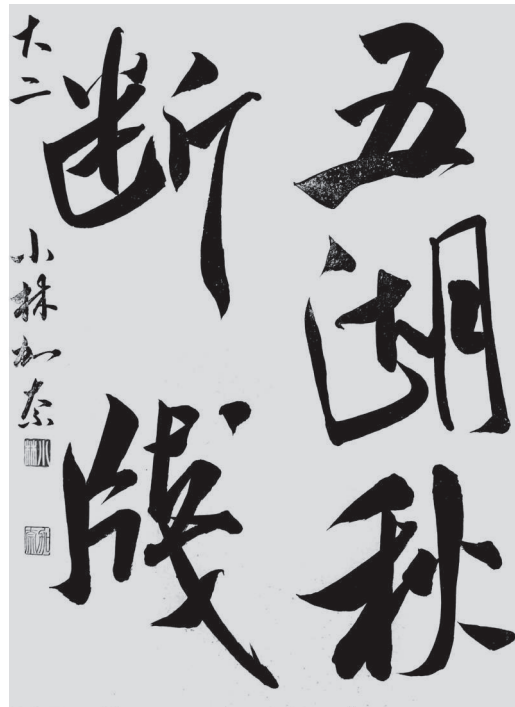 五湖秋
断牋
大二 小林加奈